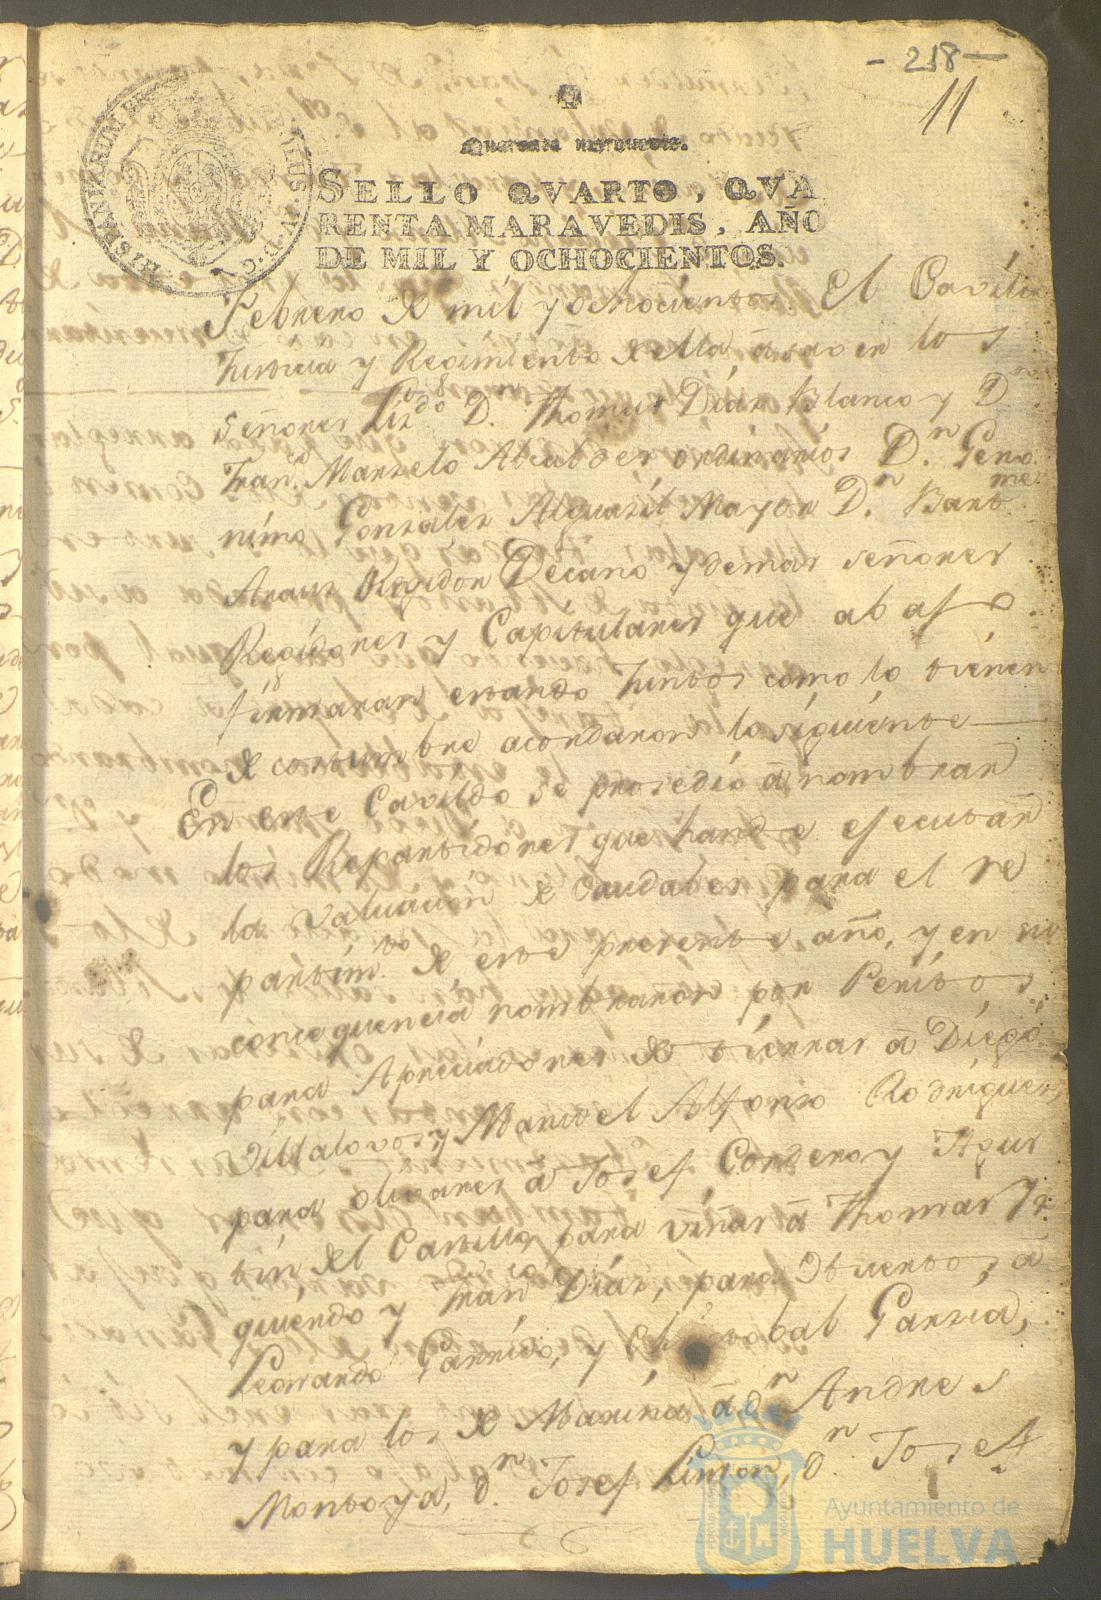 - 218 -
11
Quarenta maravedis.
SELLO QVARTO, QVA
RENTA MARAVEDIS, AÑO
DE MIL Y OCHOCIENTOS.
HISPANIARUM
Febrero de mil y ochocientos. El Cavildo
Justicia y Regimiento de ella a saver los
señores Lizdo. Dn. Thomas Díaz Blanco y Dn.
Franco. Marzelo Alcaldes ordinarios Dn. Gero
nimo Gonzales Alguazil Mayor Dn. Barme.
Arauz Regidor Decano y demas señores
Regidores y Capitulares que abajo
firmaran estando Juntos como lo tienen
de costumbre acordaron lo siguiente
En este Cavildo se prosedió à nombrar
los Repartidores que hande ejecutar
la Valuacion de Caudales para el re
partimto. de este presente año, y en su
consequencia nombraron por Peritos
para Apreciadores de tierras à Diego
Villalovos, y Manuel Alfonso Rodriguez,
para olivares à Josef Cordero y Agus
tin del Castillo, para viñas à Thomas Yz
quierdo y Franco Díaz, para Huertos, à
Leonardo Garrido, y Christobal Garzia,
y para los de Marina à dn Andres
Montoya, dn. Josef Limon, dn. Josef
Ayuntamiento de
HUELVA